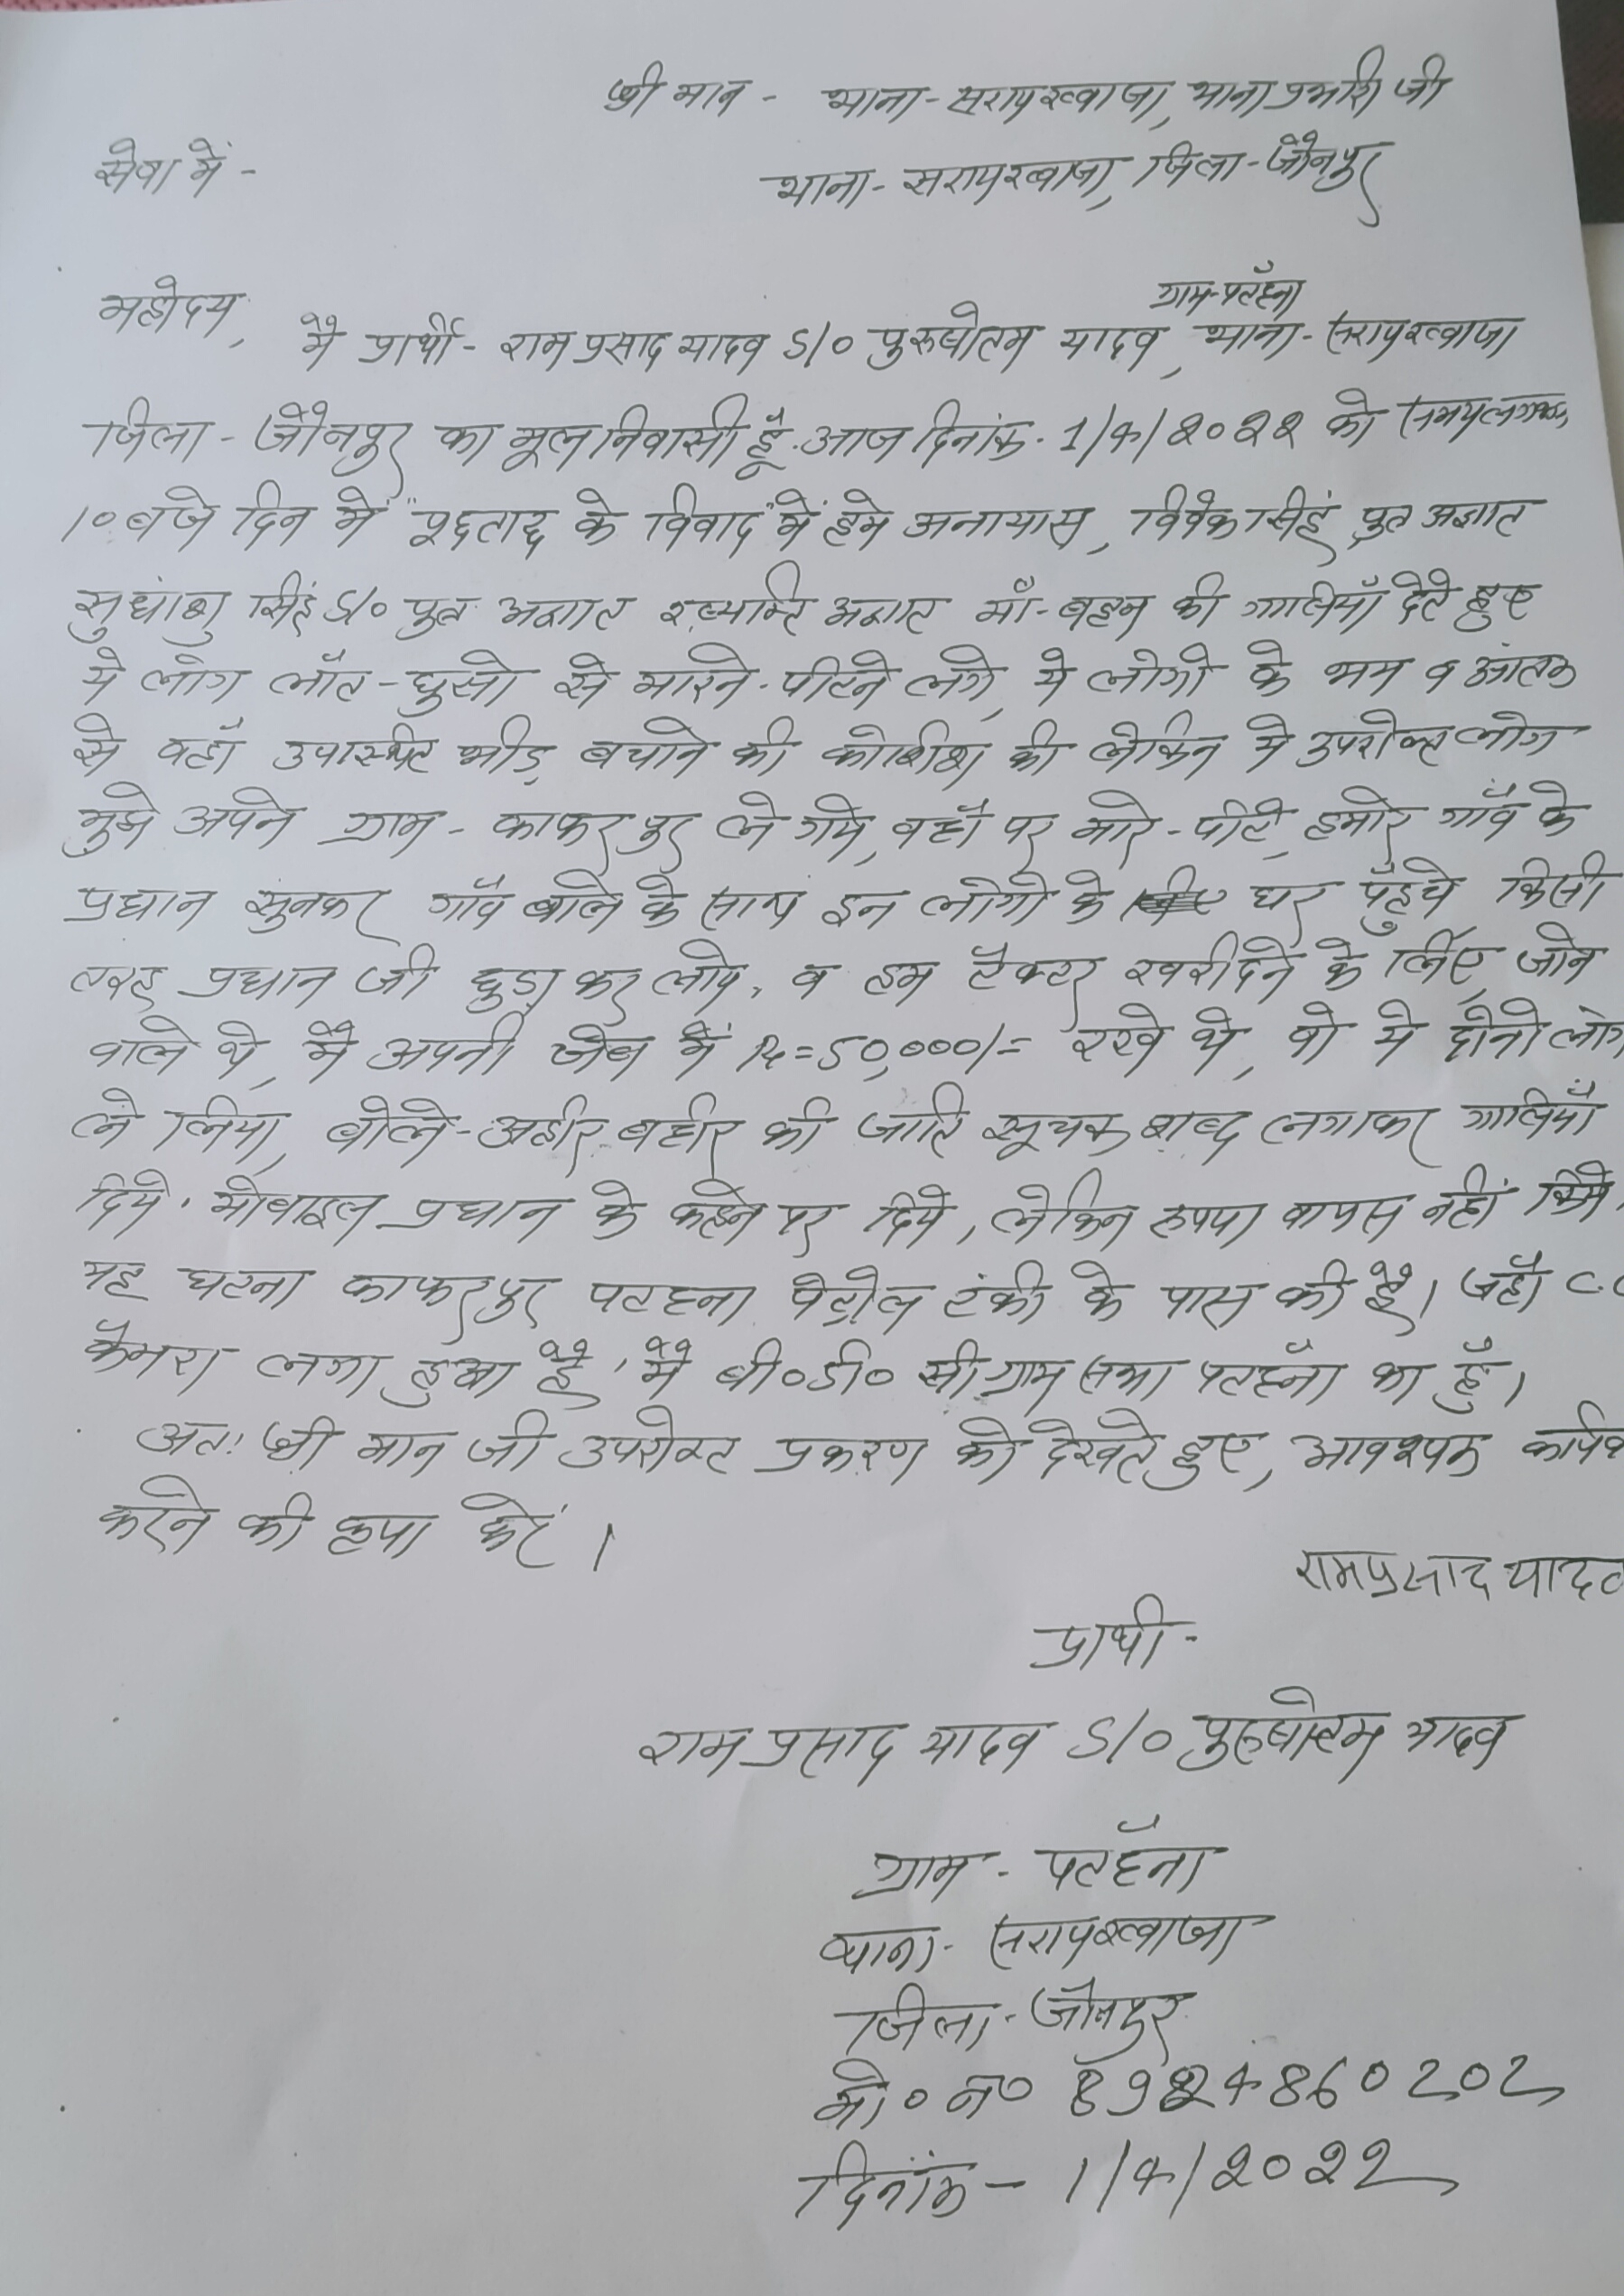 श्री मान - थाना - सरायख्वाजा, थाना प्रभारी जी
सेवा में -
थाना - सरायख्वाजा, जिला - जौनपुर
ग्राम - पटहँना
महोदय,
मै प्रार्थी - राम प्रसाद यादव S/O पुरुषोतम यादव, थाना - सरायख्वाजा
जिला - जौनपुर का मूल निवासी हूँ. आज दिनांक - 1/4/2022 को समय लगभग,
10 बजे दिन में "पूछताछ के विवाद" में हमे अनायास, विवेक सिंह पुत्र अज्ञात
सुधांशु सिंह S/O पुत्र अज्ञात व्यक्ति अज्ञात माँ - बहन की गालियाँ देते हुए
ये लोग लाँत - घुसो से मारने - पीटने लगे, ये लोगो के भय व आंतक
से वहाँ उपास्थित भीड़ बचाने की कोशिश की लेकिन ये उपरोक्त लोग
मुझे अपने ग्राम - काफरपुर ले गये, वहाँ पर मारे - पीटे, हमारे गाँव के
प्रधान सुनकर गाँव वाले के साथ इन लोगो के घर पँहुचे किसी
तरह प्रधान जी छुड़ा कर लाये, व हम टैक्टर खरीदने के लिए, जाने
वाले थे, मै अपनी जेब में Rs=50,000/= रखे थे, वो ये दोनो लोग
ले लिया, बोले - अहीर बहीर की जाति सूचक शब्द लगाकर गालियाँ
दिये, मोबाइल प्रधान के कहने पर दिये, लेकिन रुपया वापस नहीं किये,
यह घटना काफरपुर पटहना पेट्रोल टंकी के पास की है। जहाँ C.C
कैमरा लगा हुआ है, मै बी०डी० सी ग्राम सभा पटहँना का हूँ।
अतः श्री मान जी उपरोक्त प्रकरण को देखते हुए, आवश्यक
करने की कृपा करें।
रामप्रसाद यादव
प्रार्थी -
राम प्रसाद यादव S/O पुरुषोतम यादव
ग्राम - पटहँना
थाना - सरायख्वाजा
जिला - जौनपुर
मो० न०
दिनांक - 1/4/2022